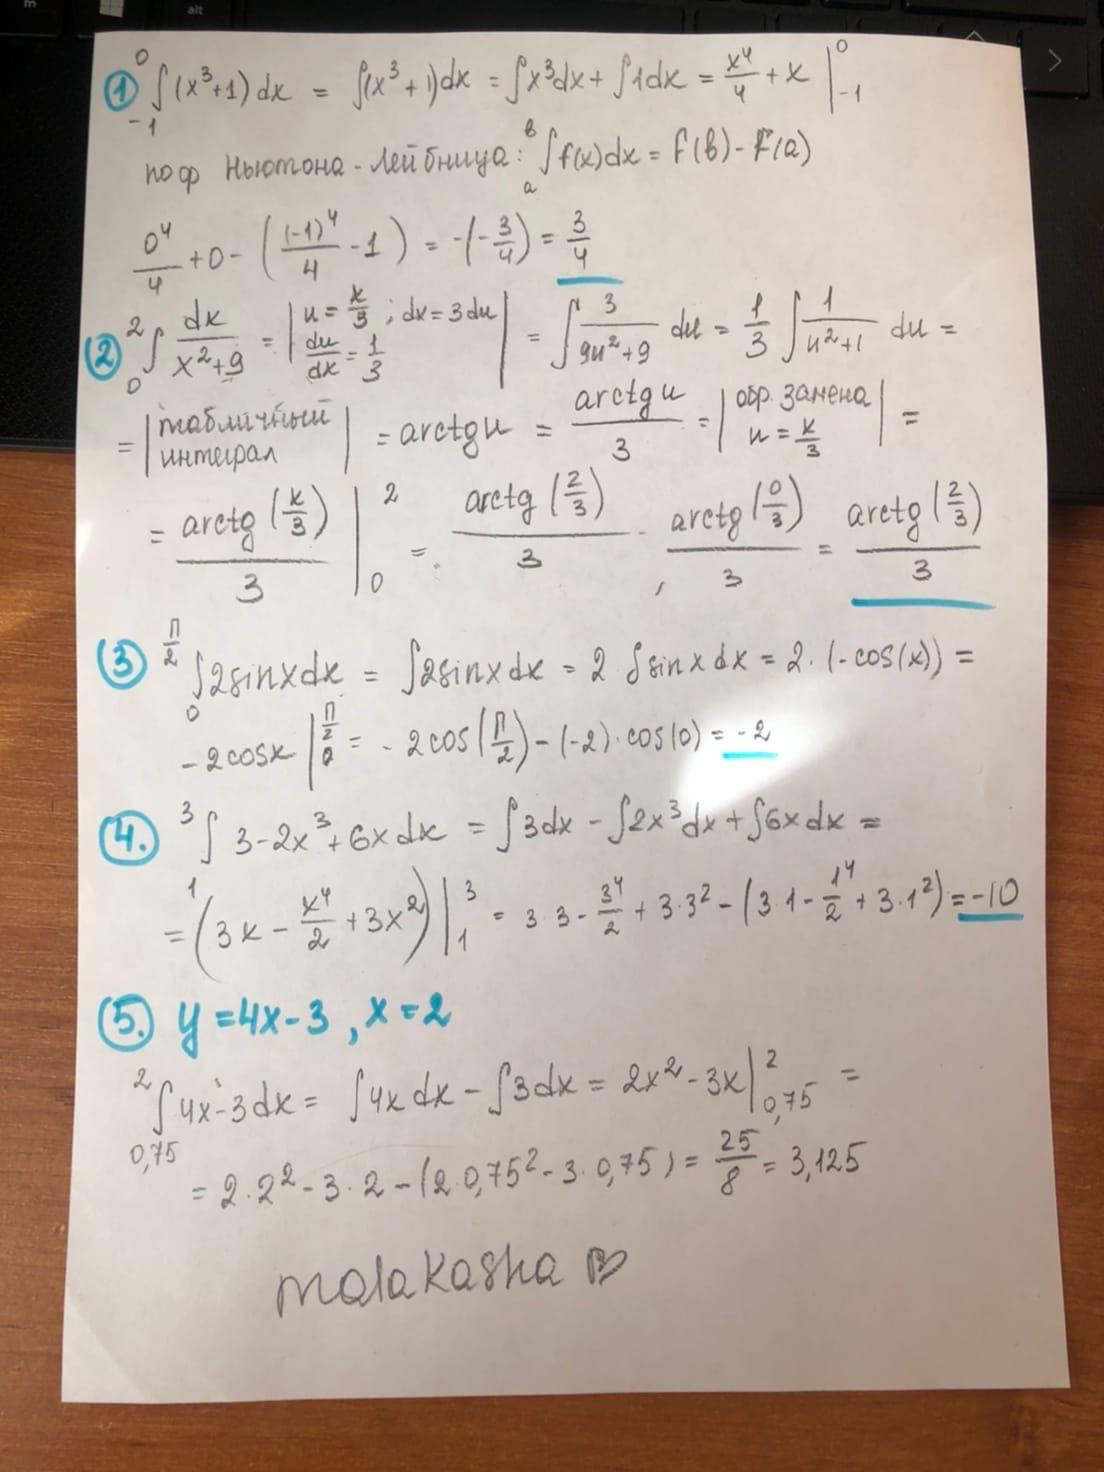 ① ⁰∫₋₁ (x³+1) dx = ∫(x³+1)dx = ∫x³dx + ∫1dx = x⁴/4 + x |⁰₋₁
по ф Ньютона - Лейбница: ᵇ∫ₐ f(x)dx = F(b) - F(a)
0⁴/4 + 0 - ((-1)⁴/4 - 1) = -(-3/4) = 3/4
② ²∫₀ dx/(x²+9) = | u = x/3 ; dx = 3du du/dx = 1/3 | = ∫ 3/(9u²+9) du = 1/3 ∫ 1/(u²+1) du =
= | табличный интеграл | = arctg u = arctg u/3 = | обр. замена u = x/3 | =
= arctg(x/3)/3 |²₀ = arctg(2/3)/3 - arctg(0/3)/3 = arctg(2/3)/3
③ π/2 ∫₀ 2sinxdx = ∫2sinxdx = 2 ∫sinx dx = 2·(-cos(x)) =
-2cosx |π/2 0 = -2cos(π/2) - (-2)·cos(0) = -2
④. ³∫₁ 3-2x³+6x dx = ∫3dx - ∫2x³dx + ∫6x dx =
= (3x - x⁴/2 + 3x²)|³₁ = 3·3 - 3⁴/2 + 3·3² - (3·1 - 1⁴/2 + 3·1²) = -10
⑤. y = 4x-3, x = 2
²∫0,75 4x-3dx = ∫4x dx - ∫3dx = 2x² - 3x |² 0,75 =
= 2·2² - 3·2 - (2·0,75² - 3·0,75) = 25/8 = 3,125
malakasha